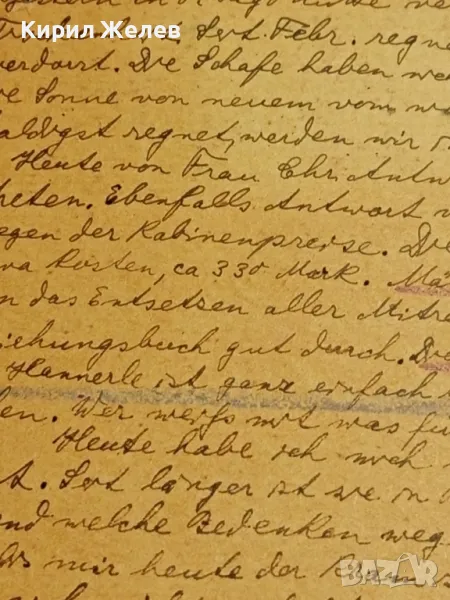 Кирил Желев
Seit Febr. regne
verdorrt. Die Schafe haben we
Sonne von neuem vom
aldigst regnet, werden wir
Heute von Frau Chr. Antw
reten. Ebenfalls Antwort v
egen der Kabinenpreise. Die
Kosten, ca 330 Mark. Mä
n das Entsetzen aller Mitre
ziehungsbuch gut durch. Die
Hannerle ist ganz einfach
en. Wer weiss mit was für
Heute habe ich noch
t. Seit länger ist sie in
nd welche Bedenken weg
mir heute der
BAZAR